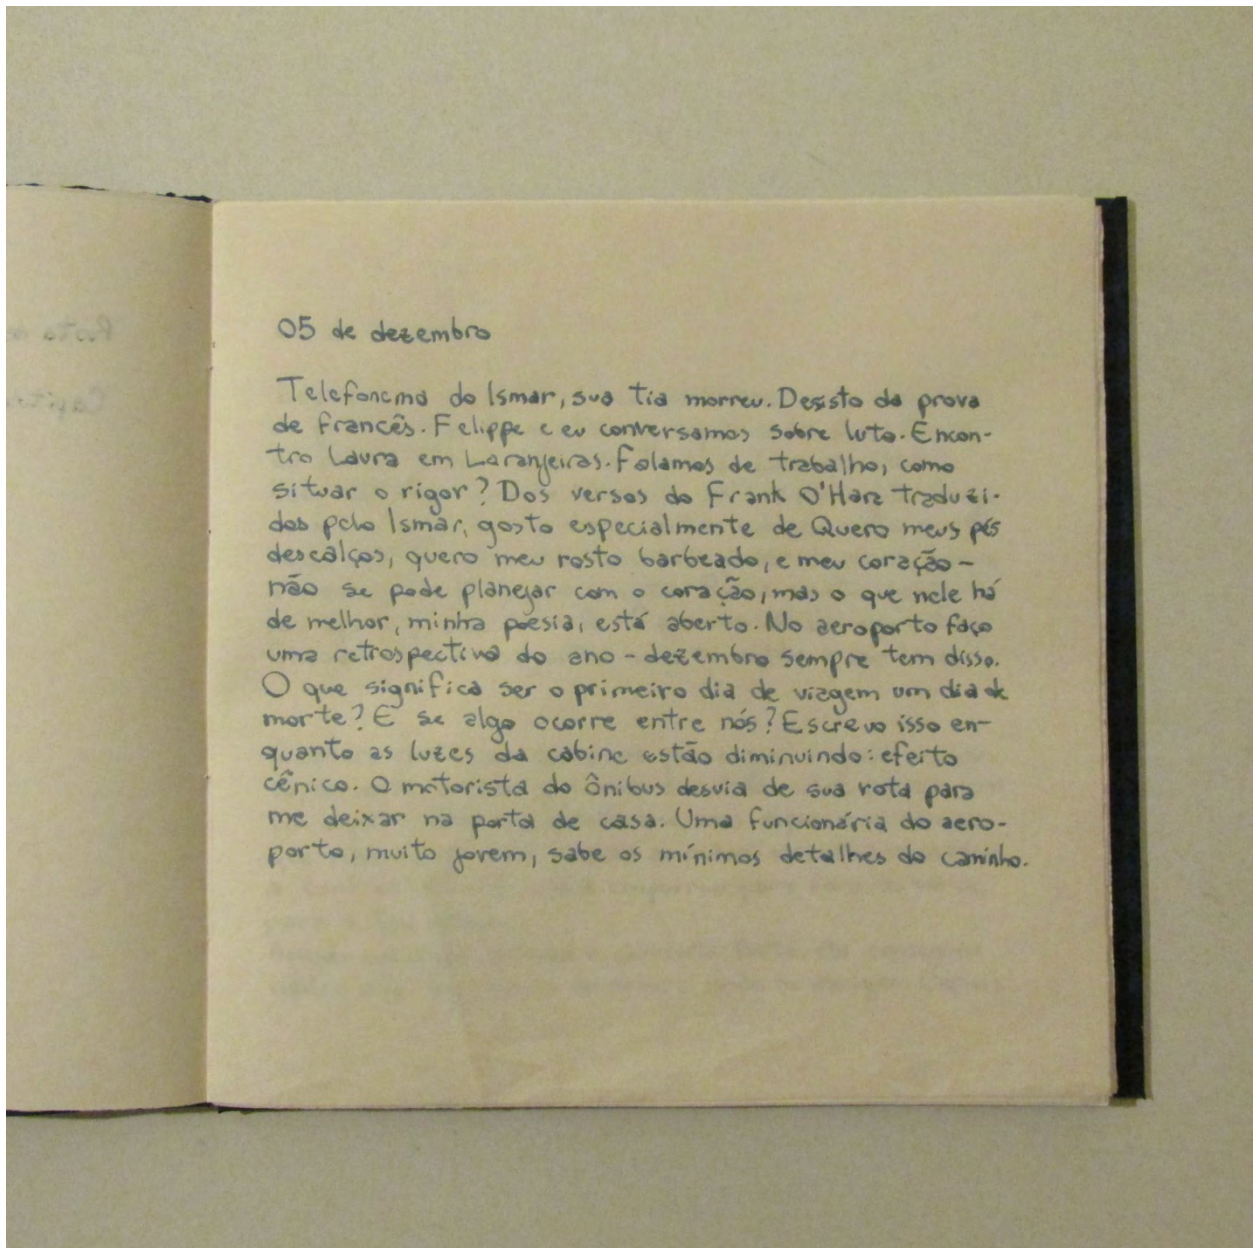 05 de dezembro
Telefonema do Ismar, sua tia morreu. Desisto da prova
de francês. Felippe e eu conversamos sobre luto. Encon-
tro Laura em Laranjeiras. Falamos de trabalho, como
situar o rigor? Dos versos do Frank O'Hara traduzi-
dos pelo Ismar, gosto especialmente de Quero meus pés
descalços, quero meu rosto barbeado, e meu coração –
não se pode planejar com o coração, mas o que nele há
de melhor, minha poesia, está aberto. No aeroporto faço
uma retrospectiva do ano – dezembro sempre tem disso.
O que significa ser o primeiro dia de viagem um dia de
morte? E se algo ocorre entre nós? Escrevo isso en-
quanto as luzes da cabine estão diminuindo: efeito
cênico. O motorista do ônibus desvia de sua rota para
me deixar na porta de casa. Uma funcionária do aero-
porto, muito jovem, sabe os mínimos detalhes do caminho.